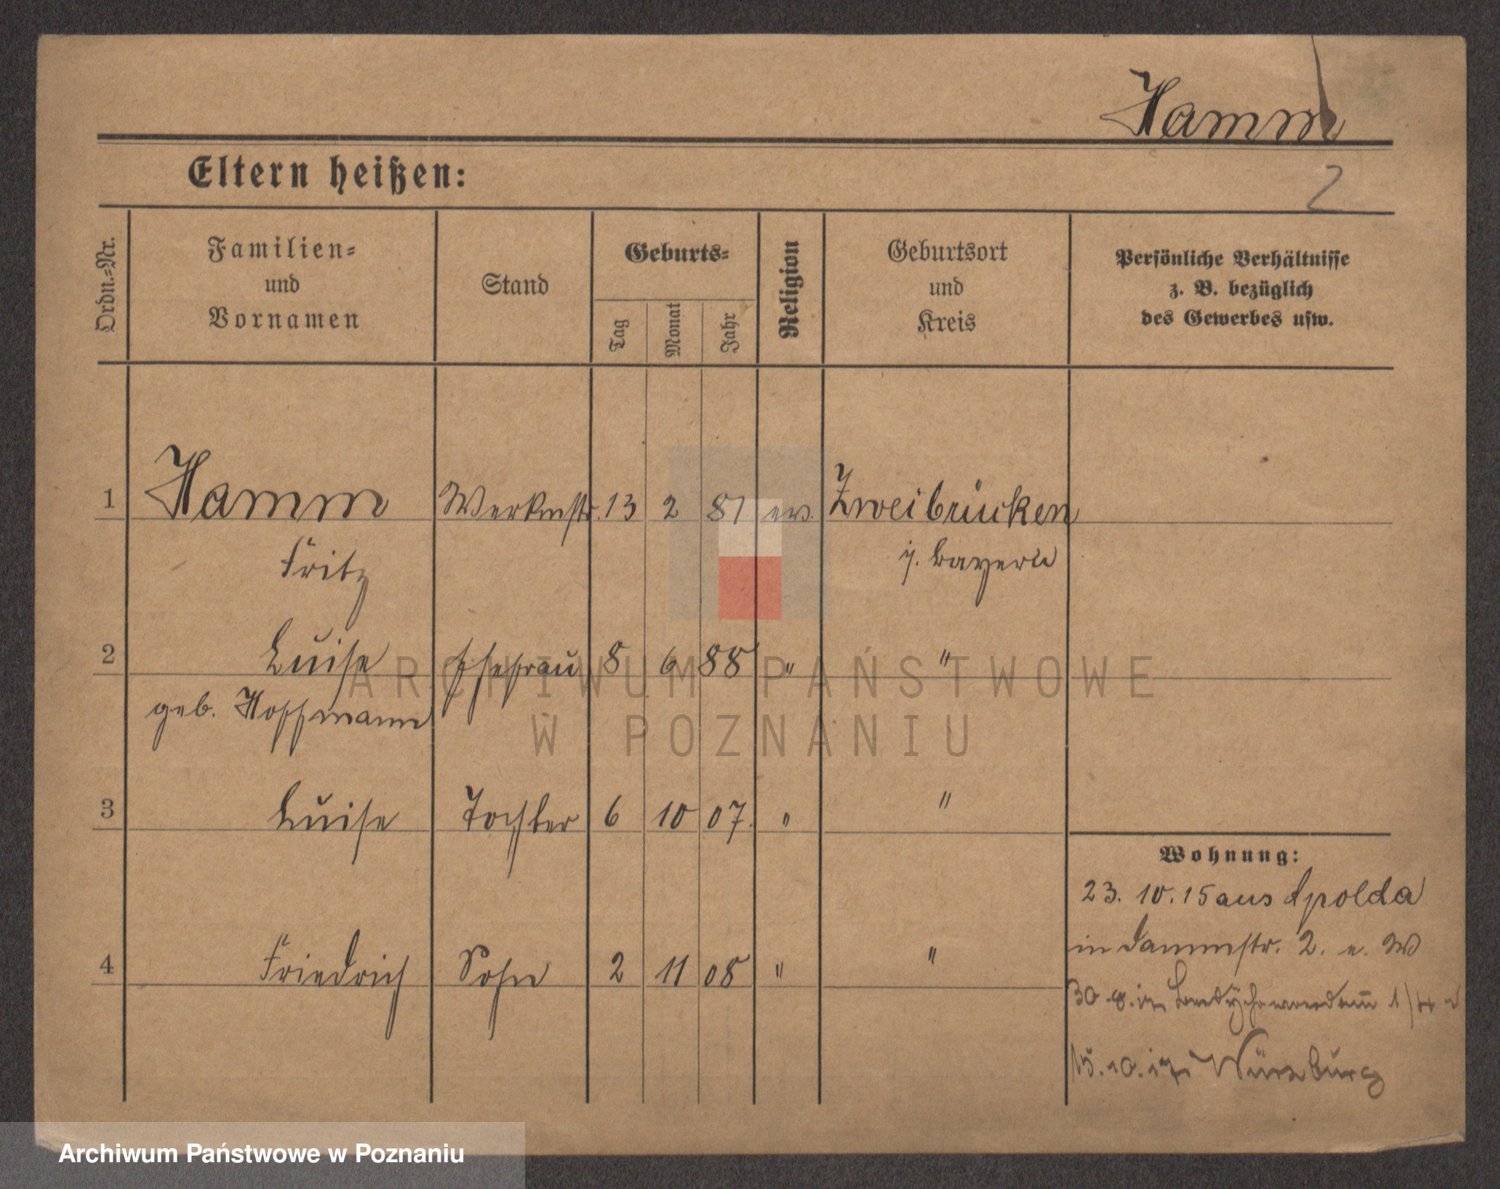 Hamm
2
Eltern heißen:
Ordn.-Nr.
Familien- und Vornamen
Stand
Geburts-
Tag
Monat
Jahr
Religion
Geburtsort und Kreis
Persönliche Verhältnisse z. B. bezüglich des Gewerbes usw.
1 Hamm Werkmstr. 13 2 81 ev. Zweibrücken
Fritz i. Bayern
2 Luise Ehefrau 8 6 88 " "
geb. Hoffmann
3 Luise Tochter 6 10 07. " "
Wohnung:
23. 10. 15 aus Apolda
in Dammstr. 2. e. W
4 Friedrich Sohn 2 11 08 " "
30
15. 10. 17 Würzburg
ARCHIWUM PAŃSTWOWE
W POZNANIU
Archiwum Państwowe w Poznaniu